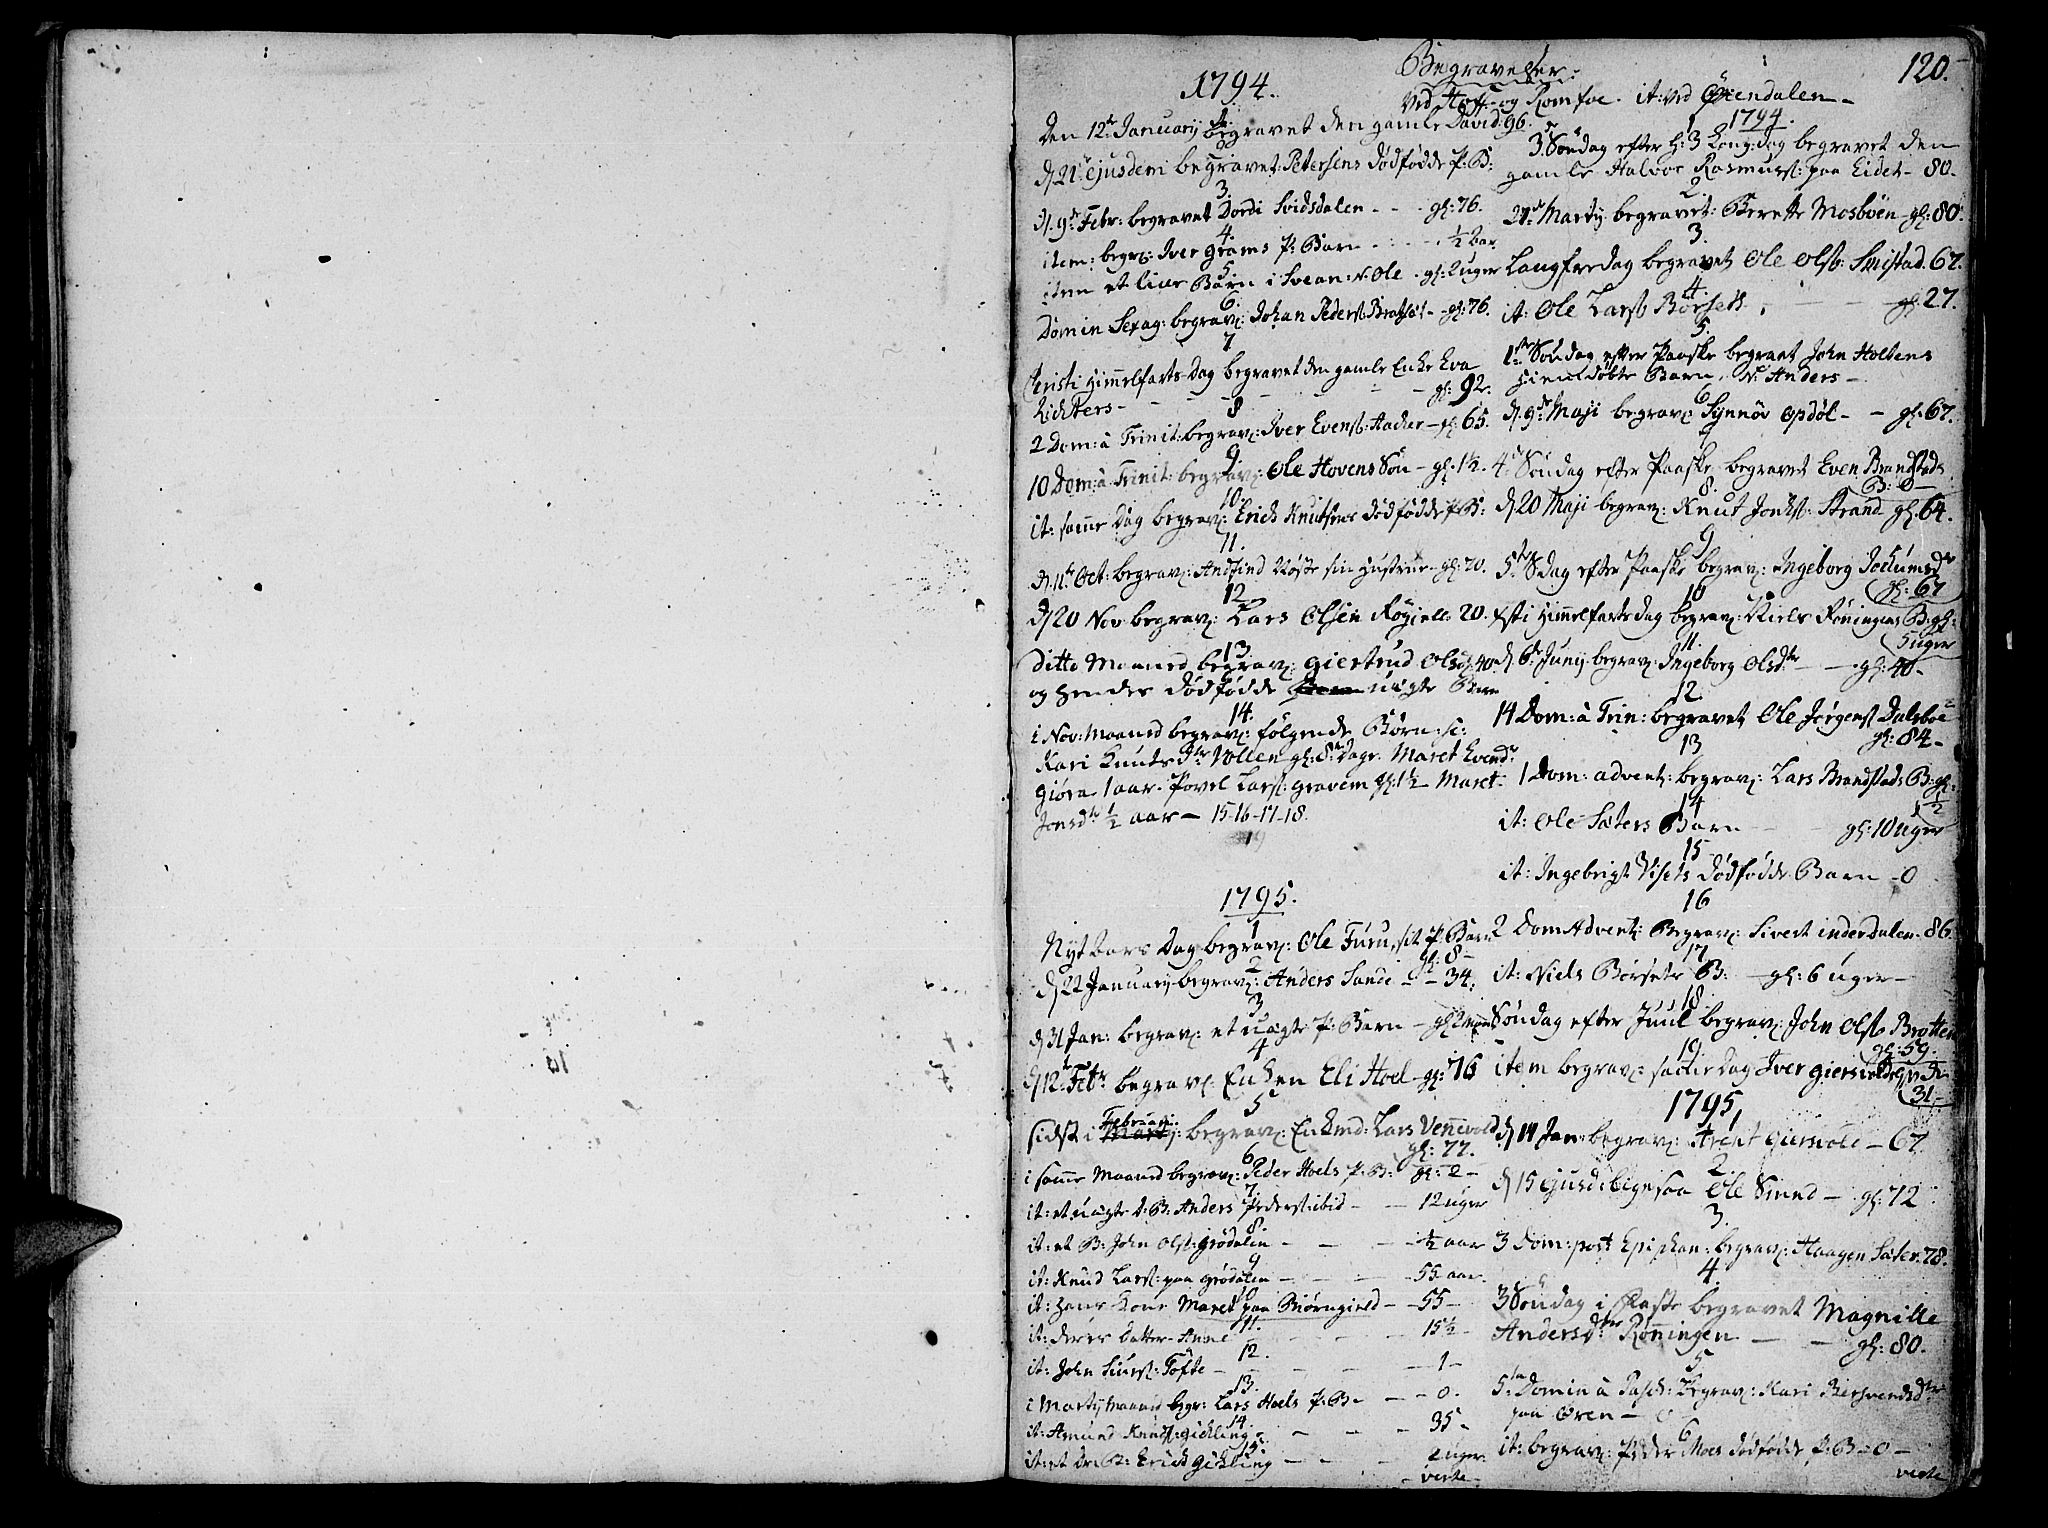 120.
Begravelser.
Vid Hoff- og Romfoe. it: vid Øxendalen -
1794.
1.
Den 12te January begravet den gamle David. 96.
2
d 21 ejusdem begravet Petersens dødfødde P: B:
3.
d. 9de Febr: begravet Dordi Svidsdalen - - - gl: 76.
4.
item: begr: Iver Grams P: Barn - - - - ½ aar
5.
item et liit Barn i Svean: N. Ole - gl: 2 uger
6.
Domin Sexag: begrav: Johan Peders: - gl: 76.
7
Christi Himmelfarts-Dag begravet den gamle Enke Eva
Richters - - - - - - gl: 92.
8
2 Dom: à Trinit: begrav: Iver Evens: Hacker - gl: 65.
9.
10 Dom: à Trinit: begrav: Ole Hovens Søn - gl. 1½.
10.
it: samme Dag begrav: Erich Knutsens dødfødde P: B:
11.
d. 11te Oct: begrav: Andfind Röste sin Hustrue - gl: 70.
12
d 20 Nov begrav: Lars Olsen 20.
13
ditto Maaned begrav: Giertrud Olsd: 40
og hendes dødfødde uægte Barn
14.
i Nov: Maaned begrav: følgende Børn: sc:
Kari Knutsdtr Vollen gl: 8te Dage. Maret Evendtr
Giøra 1 aar. Povel Lars: Gravem gl: 1½ Maret
Jonsdtr ½ aar - 15-16-17-18.
19
1795.
1
Nyt Aars Dag begrav: Ole Furu, sit P: Barn
gl: 8 -
2
d 22 January begrav: Anders Sande - - 34.
3
d 31 Jan: begrav: et uægte P: Barn - gl:
4
d 12te Febr begrav: Enken Eli Hoel - gl: 76
5
sidst i Februarii begrav: Enkmd: Lars Vennevold
gl: 77.
6
i samme Maaned begrav: Peder Hoels P: B: gl: 2 -
7
it: et uægte D: B: Anders Peders: ibid - - 12 uger
8.
it: et B: John Ols: Grødalen - - - ½ aar
9
it: Knud Lars: paa Grødalen - - - 55 aar.
10
it: hans Kone Maret paa Biørngield - - 55 -
11.
it: deres Datter Anne - - - 15½ -
12.
it: John Siurs: Tofte - - - - 1 -
13.
i Martij maaned bgr: Lars Hoels P: B - - 0.
14.
it: Amund Knuts: Gickling - - - 35 -
15.
it: et Dr: B: Erich Gickling - - - 2 uger.
- verte -
1794.
1
3. Søndag efter H: 3 Kong: dag begravet den
gamle Halvor Rasmuss: paa Eidet - 80.
2.
21de Martij begravet: Berette Mosbøen - gl: 80.
3.
Langfredag begravet Ole Ols: Smistad. 67.
4.
it: Ole Lars: Børseth - - - gl: 27.
5.
1ste Søndag efter Paaske begravet John Holtens
hiemdøbte Barn, N: Anders -
6
d. 9de Maji begrav: Synnøv Opdøl - - gl. 67.
7
4 Søndag efter Paaske begravet Even Brandstads
B: 0 -
8.
d 20 Maji begrav: Knut Jons: Strand gl. 64.
9
5te Sdag efter Paaske begrav: Ingeborg
gl: 67
10
Xsti Himmelfarts dag begrav: Niels Rönningens B: gl:
5 uger
11.
d. 6te Junij begrav: Ingeborg Olsdtr - - gl: 40 -
12.
14 Dom: à Trin: begravet Ole Jørgens: Dalsboe
gl: 84 -
13
1 Dom: advent: begrav: Lars Brandstads B: gl:
1½
14
it: Ole Sæters Barn - - gl: 10 uger
15
it: Ingebrigt Visets dødfødde Barn - 0
16
2 Dom Advent: Begrav: Sivert inderdalen - 86.
17
it: Niels Børsets B: - gl: 6 uger -
18.
Søndag efter Juul begrav: John Ols: Brotten
gl: 59.
19.
item begrav: samme dag Iver
31 -
1795,
1
d 14 Jan: begrav: - 67.
2
d 15 ejusd: ligesaa Ole Smed - gl: 72
3.
3 Dom: post Epiphan: begrav: Haagen Sæter. 78.
4.
3 Søndag i Faste begravet Magnille
Andersdtter Rønningen - - gl: 80.
5
5te Domin à Pasch: begrav: Kari
paa Øren - 0
6
it: begrav: Peder Moes dødfødde P: B - 0 -
verte